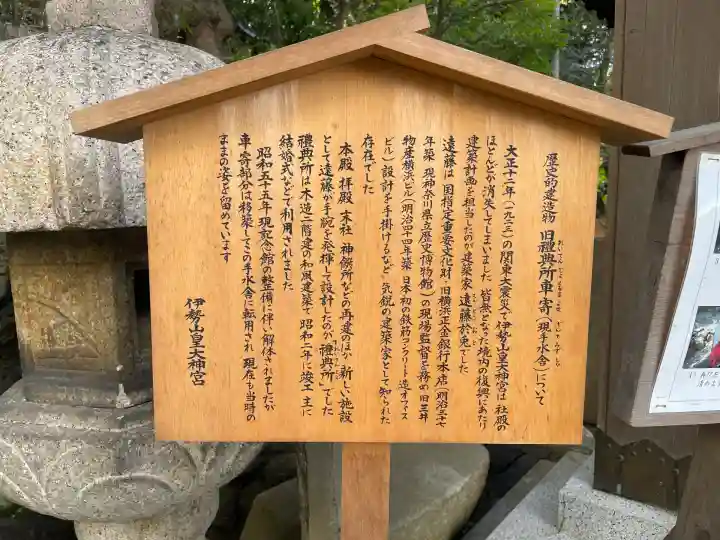 歴史的建造物 旧禮典所車寄(現手水舎)について
大正十二年(一九二三)の関東大震災で伊勢山皇大神宮は 社殿の
ほとんどが消失してしまいました 皆無となった境内の復興にあたり
建築計画を担当したのが建築家 遠藤於菟でした
遠藤は 国指定重要文化財 旧横浜正金銀行本店(明治三十七
年築 現神奈川県立歴史博物館)の現場監督を務め 旧三井
物産横浜ビル(明治四十四年築 日本初の鉄筋コンクリート造オフィス
ビル)設計を手掛けるなど 気鋭の建築家として知られた
存在でした
本殿 拝殿 末社 神饌所などの再建のほか 新しい施設
として遠藤が手腕を発揮して設計したのが 禮典所 でした
禮典所は木造二階建の和風建築で 昭和二年に竣工 主に
結婚式などで利用されました
昭和五十五年 現記念館の整備に伴い 解体されましたが
車寄部分は移築してこの手水舎に転用され 現在も当時の
ままの姿を留めています
伊勢山皇大神宮